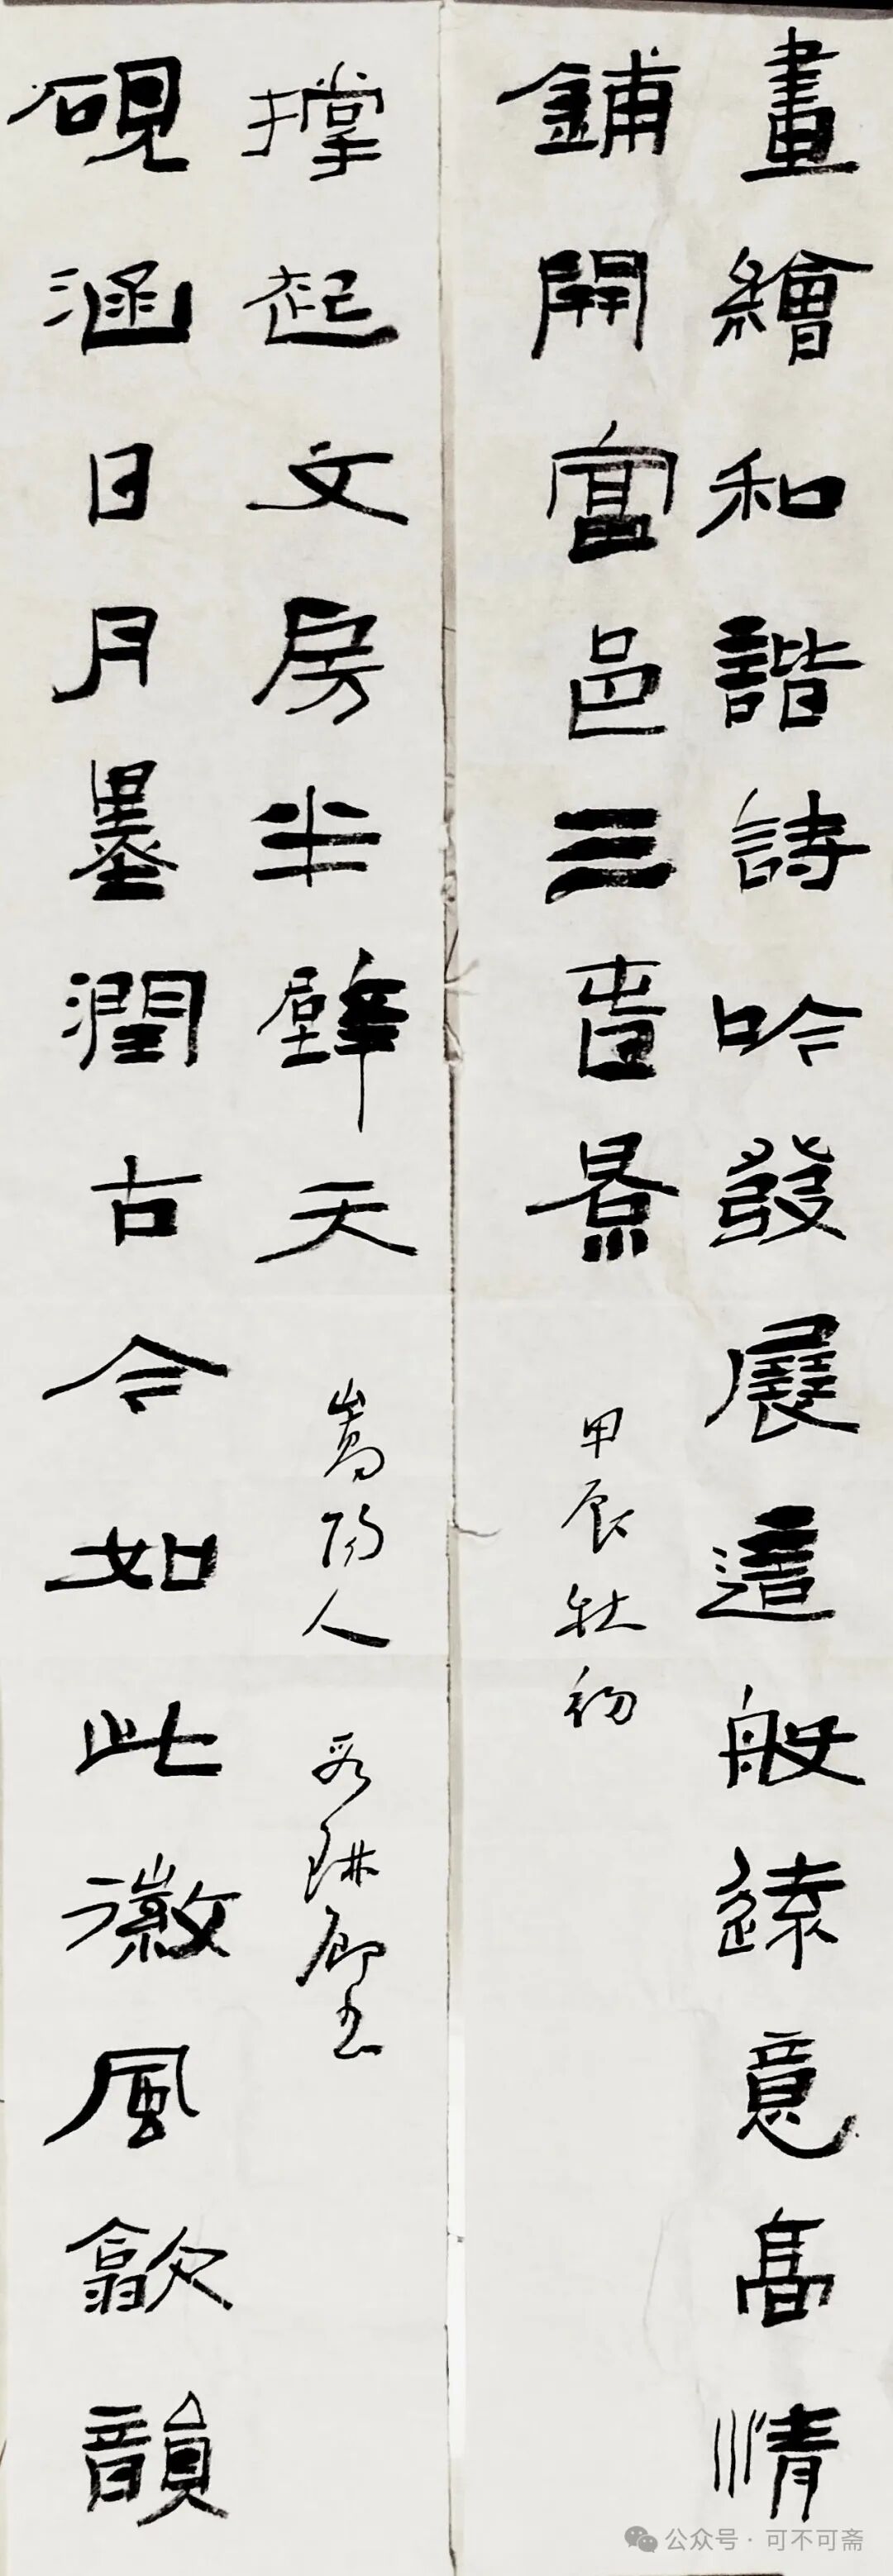 畫繪和諧詩吟發展這般遠意高情
鋪開富邑三春景
甲辰秋初
硯涵日月墨潤古今如此徽風歙韻
撐起文房半壁天
嵩陽人 琳卿書
公众号·可不可斋